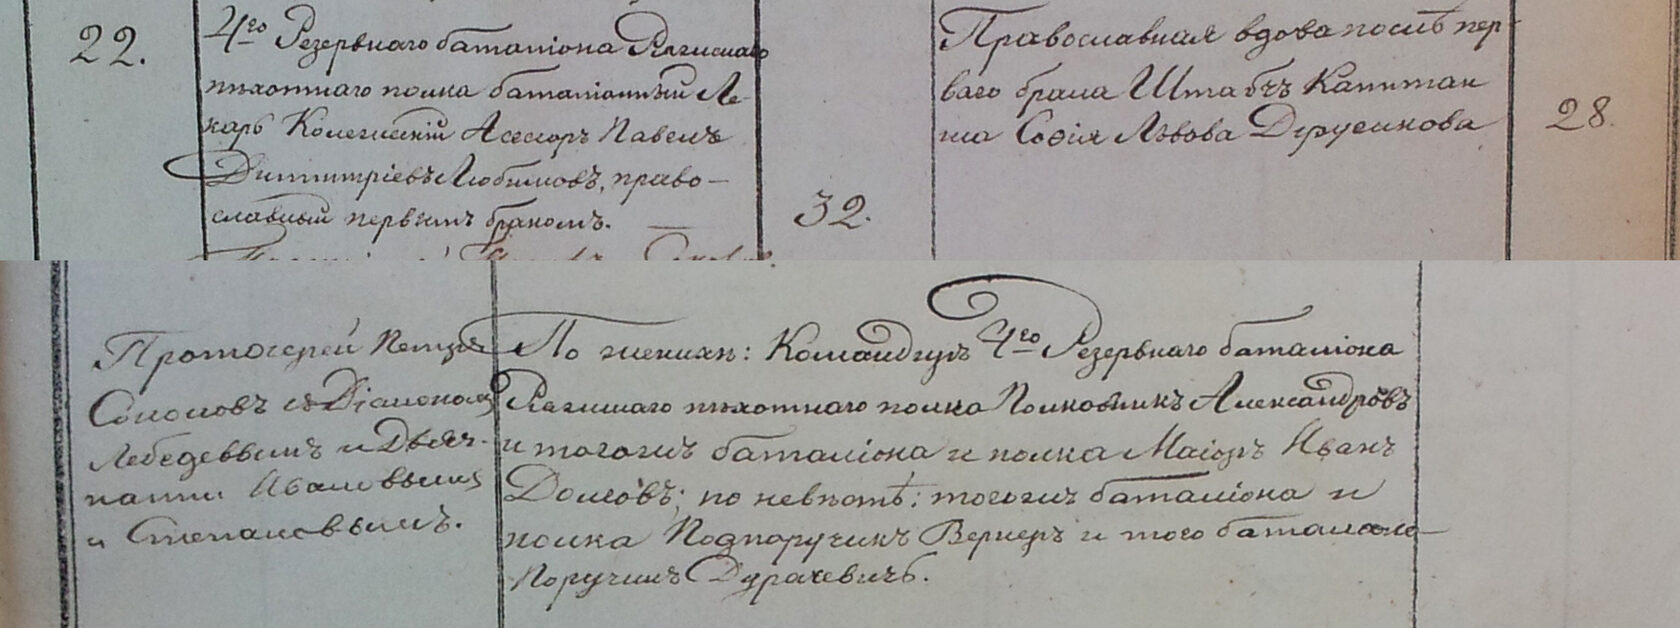 22.
4го Резервнаго баталіона Ряжскаго
пѣхотнаго полка баталіонный Ле-
карь Колежскій Асессоръ Павелъ
Димитріевъ Любимовъ, право-
славный первымъ бракомъ.
32.
Православная вдова послѣ пер-
ваго брака Штабсъ Капитан
ша Софія Львова
28.
Протоіерей Петръ
Соколовъ съ Діакономъ
Лебедевымъ и Дьяч-
ками Ивановымъ
и Степановымъ.
По женихѣ: Командиръ 4го Резервнаго баталіона
Ряжскаго пѣхотнаго полка Полковникъ Александровъ
и тогожъ баталіона и полка Маіоръ Иванъ
Долговъ; по невѣстѣ: тогожъ баталіона и
полка Подпоручикъ Вернеръ и того баталіона
Поручикъ